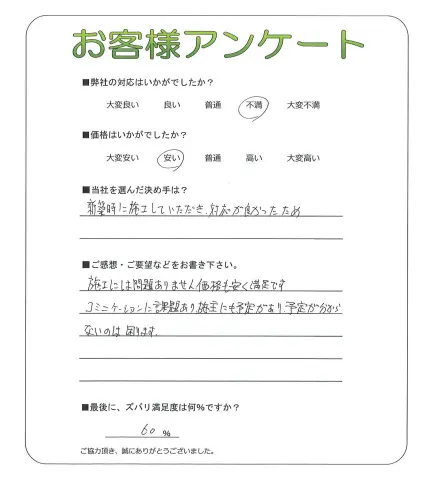 お客様アンケート
■弊社の対応はいかがでしたか？
大変良い 良い 普通 不満 大変不満
■価格はいかがでしたか？
大変安い 安い 普通 高い 大変高い
■当社を選んだ決め手は？
新築時に施工していただき、対応が良かったため
■ご感想・ご要望などをお書き下さい。
施工には問題ありません価格も安く満足です
コミニケーションに課題あり、施主にも予定があり、予定が分から
ないのは困ります。
■最後に、ズバリ満足度は何％ですか？
60 %
ご協力頂き、誠にありがとうございました。